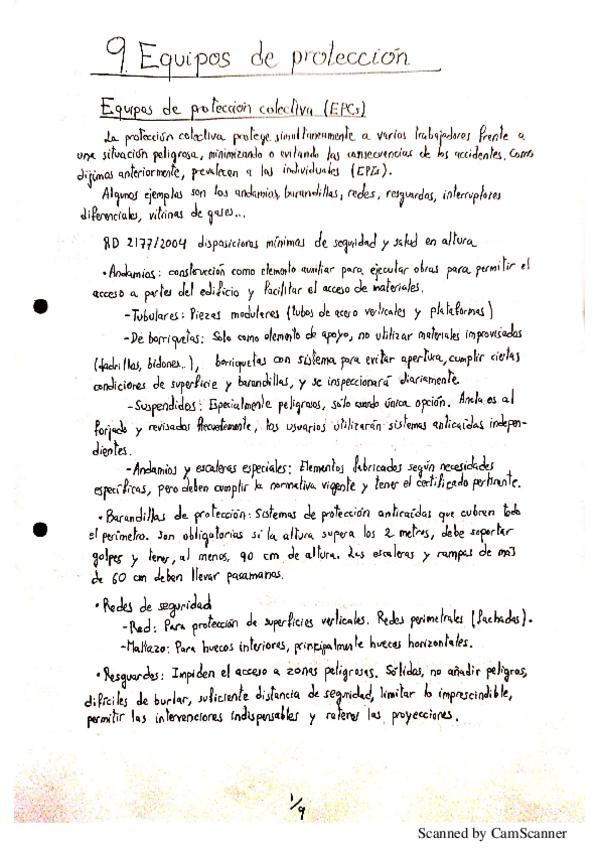 9. Equipos de protección
Equipos de protección colectiva (EPCs)
La protección colectiva protege simultáneamente a varios trabajadores frente a
una situación peligrosa, minimizando o evitando las consecuencias de los accidentes. Como
dijimos anteriormente, prevalecen a las individuales (EPIs).
Algunos ejemplos son los andamios, barandillas, redes, resguardos, interruptores
diferenciales, vitrinas de gases...
RD 2177/2004 disposiciones mínimas de seguridad y salud en altura
• Andamios: construcción como elemento auxiliar para ejecutar obras para permitir el
acceso a partes del edificio y facilitar el acceso de materiales.
- Tubulares: Piezas modulares (tubos de acero verticales y plataformas)
- De borriquetas: Solo como elemento de apoyo, no utilizar materiales improvisados
(ladrillos, bidones..), borriquetas con sistema para evitar apertura, cumplir ciertas
condiciones de superficie y barandillas, y se inspeccionará diariamente.
- Suspendidos: Especialmente peligrosos, sólo cuando única opción. Anclajes al
forjado y revisados frecuentemente, los usuarios utilizarán sistemas anticaídas indepen-
dientes.
- Andamios y escaleras especiales: Elementos fabricados según necesidades
específicas, pero deben cumplir la normativa vigente y tener el certificado pertinente.
• Barandillas de protección: Sistemas de protección anticaídas que cubren todo
el perímetro. Son obligatorias si la altura supera los 2 metros, debe soportar
golpes y tener, al menos, 90 cm de altura. Las escaleras y rampas de más
de 60 cm deben llevar pasamanos.
• Redes de seguridad
- Red: Para protección de superficies verticales. Redes perimetrales (fachadas).
- Mallazo: Para huecos interiores, principalmente huecos horizontales.
• Resguardos: Impiden el acceso a zonas peligrosas. Sólidos, no añadir peligros,
difíciles de burlar, suficiente distancia de seguridad, limitar lo imprescindible,
permitir las intervenciones indispensables y retener las proyecciones.
1/9
Scanned by CamScanner